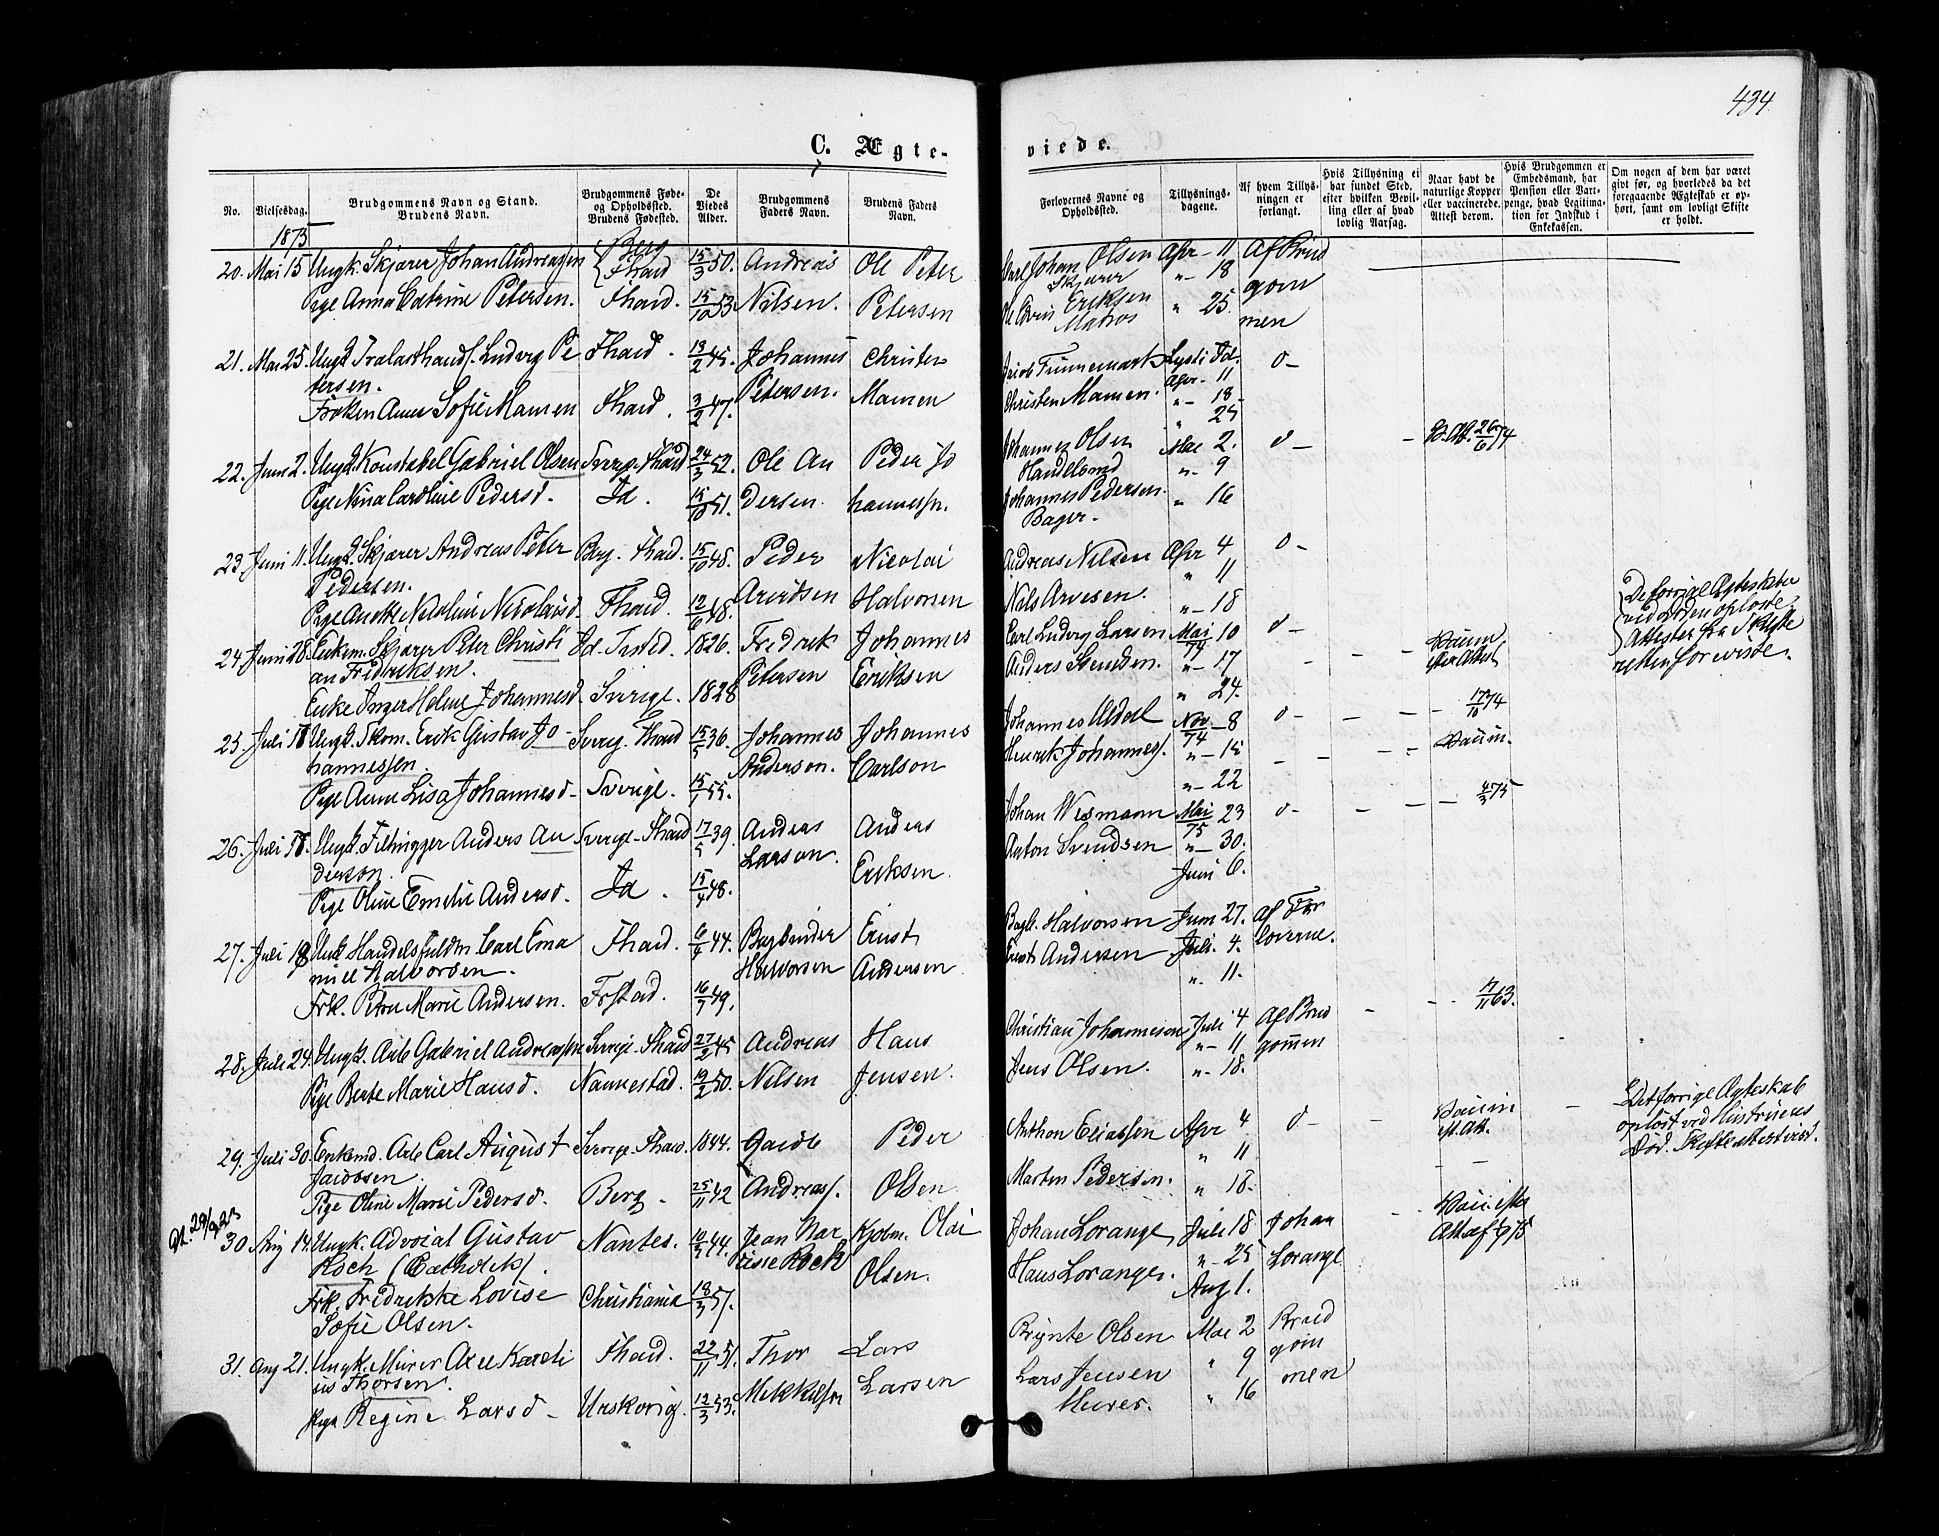 434
C. Ægte-
viede.
No.
Vielsesdag.
Brudgommens Navn og Stand.
Brudens Navn.
Brudgommens Føde-
og Opholdssted.
Brudens Fødested.
De
Viedes
Alder.
Brudgommens
Faders Navn.
Brudens Faders
Navn.
Forlovernes Navne og
Opholdssted.
Tillysnings-
dagene.
Af hvem Tillys-
ningen er
forlangt.
Hvis Tillysning ei
har fundet Sted,
efter hvilken Bevil-
ling eller af hvad
lovlig Aarsag.
Naar havt de
naturlige Kopper
eller vaccinerede.
Attest derom.
Hvis Brudgommen er
Embedsmand, har
Pension eller Vart-
penge, hvad Legitima-
tion for Indskud i
Enkekassen.
Om nogen af dem har været
givt før, og hvorledes da det
foregaaende Ægteskab er op-
hørt, samt om lovligt Skifte
er holdt.
1875
20. Mai 15 Ungk. Skjærer Johan Andreassen Berg Fhald 15/3 50. Andreas Ole Peter
Pige Anna Catrine Petersen. Fhald. 15/10 53. Nilsen. Petersen
Carl Johan Olsen Apr - 11 Af Brud
Skjærer " - 18 gom
Eriksen " 25. men
Matros
21. Mai 25. Ungk. Tralasthandl. Ludvig Pe Fhald. 13/2 45. Johannes Christen
tersen. Petersen. Mamen
Frøken Anna Sofie Mamen Fhald. 3/2 47.
Jacob Finnemark Lyst i Id. o-
Apr - 11
Christen Mamen. " - 18
" 25
22. Juni 2. Ungk. Konstabel Gabriel Olsen Sverg. Fhald 24/3 52. Ole An Peder Jo
Pige Nina Caroline Pedersd. Id. 15/10 51. dersen. hannessn.
Johannes Olsen Mai 2. o - - 26/6 74
Handelsmd " - 9
Johannes Pedersen. " 16
Bager.
23 Juni 11. Ungk. Skjærer Andreas Peter Berg. Fhald. 15/10 48. Peder Nicolai
Pedersen. Arvidsen Halvorsen
Pige Anette Nicoline Nicolaisd. Fhald. 12/6 48.
Andreas Nilsen Apr 4 o-
" 11
Nils Arvesen. " - 18
24 Juni 28. Enkem. Skjærer Peter Christi Id. Tisted. 1826. Fredrik Johannes
an Fredriksen. Petersen Eriksen
Enke Inger Helene Johannesd. Sverige. 1828
Carl Ludvig Larsen Mai 10 o-
Anders Svendsen. 74 " - 17
" 24.
Vaccin
efter Attest
De forrige Ægteskaber
ved Døden opløste.
Attester fra Skifte
retten forevist.
25. Juli 18 Ungk. Skom. Erik Gustav Jo- Sverg. Fhald 15/5 36. Johannes Johannes
hannessen. Anderson. Carlson
Pige Anna Lisa Johannesd- Sverige. 15/1 55.
Johannes Aldal Nov 8 o - - 17/10 74
Henrik Johanness. 74 " - 15 Vaccin.
" - 22
26. Juli 18. Ungk. Filhugger Anders An Sverige - Fhald 17/5 39. Anders Anders
derson. Larson. Eriksen
Pige Oline Emelie Andersd. Id. 15/4 48.
Johan Wismann Mai 23 o - - 4/3 75
Anton Svendsen 75 " - 30.
Juni 6.
27. Juli 18 Ungk. Handelsfuldm. Carl Ema Fhald. 6/9 44. Bogbinder Ernst
nuel Halvorsen. Halvorsen Andersen
Frk. Petra Marie Andersen. Frstad. 16/7 49.
Bogb. Halvorsen Juni 27. Af For
Ernst Andersen Juli 4. loverne.
" 11.
28. Juli 24. Ungk. Arb. Gabriel Andreassen Sverige - Fhald 27/2 45 Andreas Hans
Pige Berte Marie Hansd. Nannestad. 19/2 50. Nilsen Jensen.
Christian Johannesen Juli 4 Af Brud - 17/11 63.
" - 11 gommen
Jens Olsen. " - 18.
29. Juli 30. Enkemd. Arb. Carl August Sverige - Fhald. 1844. Peder
Jacobsen. Andreass. Olsen
Pige Oline Marie Pedersd. Berg. 25/11 42
Anthon Eliassen Apr 4 o - - Vaccin
" 11 eft. Att.
Morten Pedersen. " 18.
Det forrige Ægteskab
opløst ved Hustruens
Død. Skifteattest vist.
30 Aug 14. Ungk. Advocat Gustav Nantes. 10/3 44. Jean Nar Kjøbm. Olai
Roch (Catholik). cisse Roch Olsen.
Frk. Fredrikke Lovise Christiania 18/3 57.
Sofie Olsen.
Johan Lorange, Juli 18 Johan - -
" - 25 Lorange
Hans Lorange. Aug 1.
31. Aug 21. Ungk. Murer Axel Kareli Fhald. 22/11 51. Thor Lars
us Thorsen. Mikkelsn Larsen
Pige Regine Larsd - Urskovig. 12/3 53.
Brynte Olsen Mai 2 Brud
" 9 gom
Lars Jensen " 16 men
Murer.